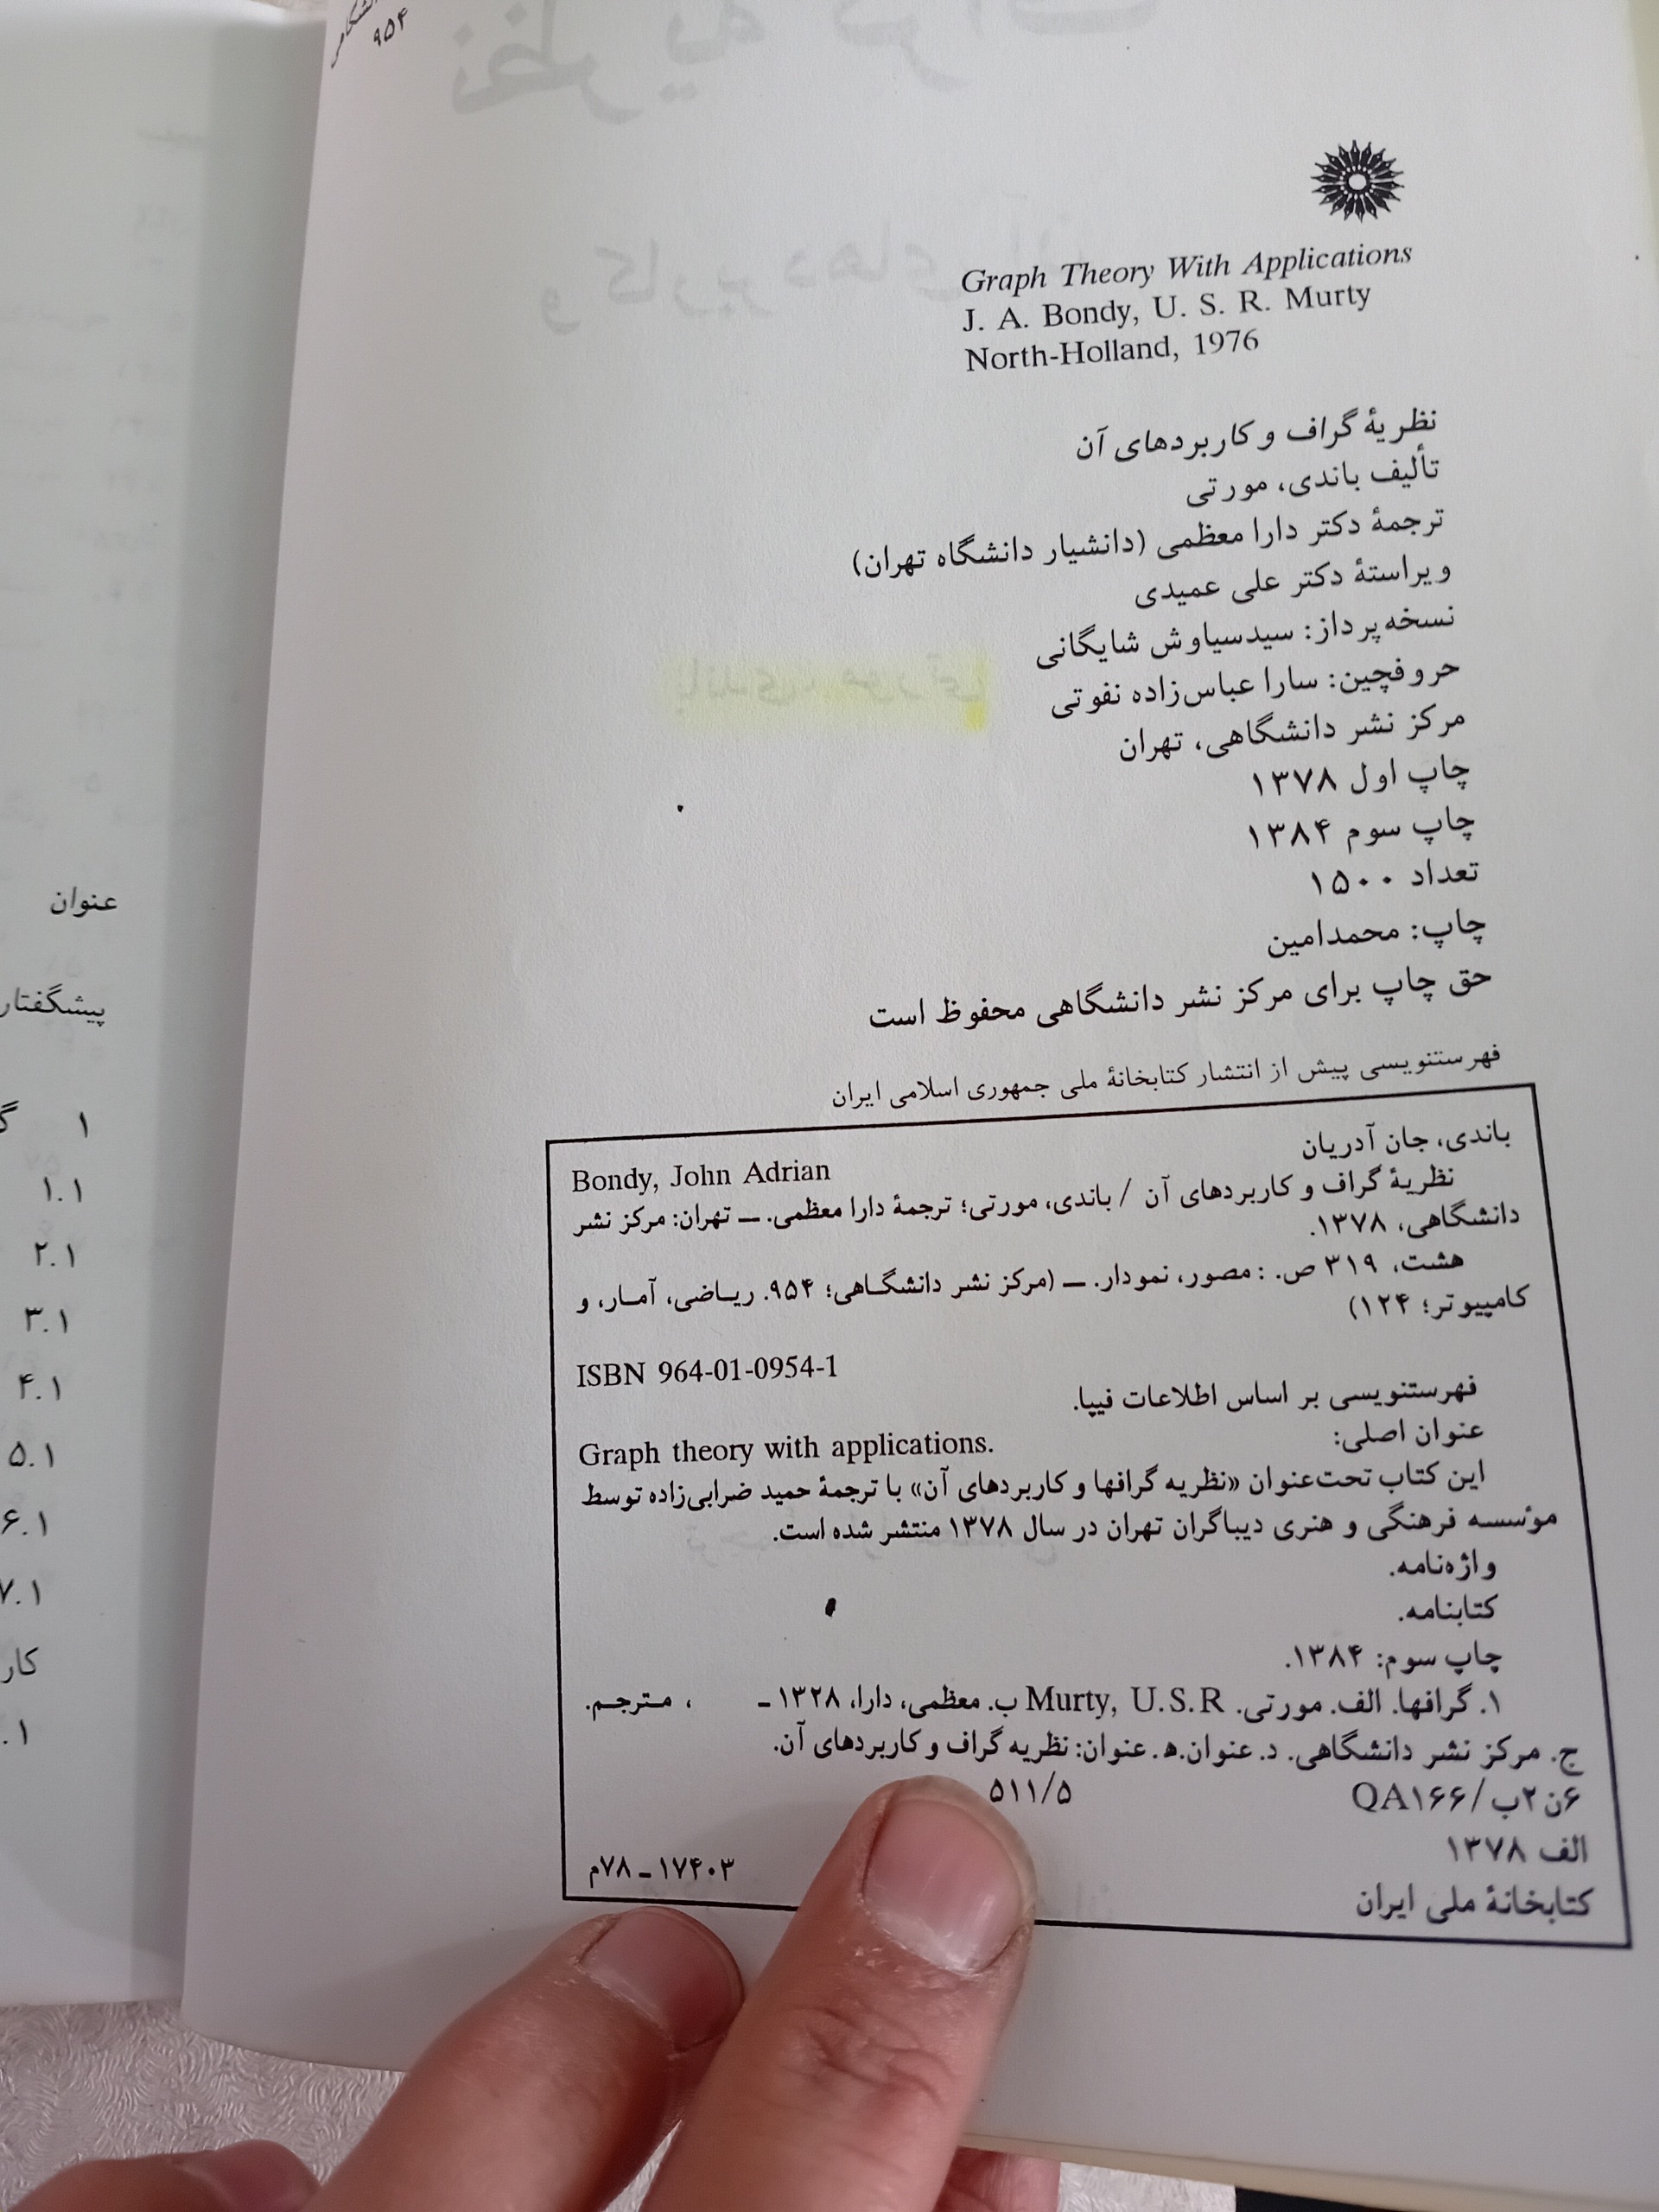 ۹۵۴
Graph Theory With Applications
J. A. Bondy, U. S. R. Murty
North-Holland, 1976
نظریهٔ گراف و کاربردهای آن
تألیف باندی، مورتی
ترجمهٔ دکتر دارا معظمی (دانشیار دانشگاه تهران)
ویراستهٔ دکتر علی عمیدی
نسخه‌پرداز: سیدسیاوش شایگانی
حروفچین: سارا عباس‌زاده نفوتی
مرکز نشر دانشگاهی، تهران
چاپ اول ۱۳۷۸
چاپ سوم ۱۳۸۴
تعداد ۱۵۰۰
چاپ: محمدامین
حق چاپ برای مرکز نشر دانشگاهی محفوظ است
فهرستنویسی پیش از انتشار کتابخانهٔ ملی جمهوری اسلامی ایران
باندی، جان آدریان Bondy, John Adrian
نظریهٔ گراف و کاربردهای آن / باندی، مورتی؛ ترجمهٔ دارا معظمی. ـــ تهران: مرکز نشر
دانشگاهی، ۱۳۷۸.
هشت، ۳۱۹ ص. : مصور، نمودار. ـــ (مرکز نشر دانشگاهی؛ ۹۵۴. ریاضی، آمار، و
کامپیوتر؛ ۱۲۴)
ISBN 964-01-0954-1
فهرستنویسی بر اساس اطلاعات فیپا.
عنوان اصلی: Graph theory with applications.
این کتاب تحت‌عنوان «نظریه گرافها و کاربردهای آن» با ترجمهٔ حمید ضرابی‌زاده توسط
مؤسسه فرهنگی و هنری دیباگران تهران در سال ۱۳۷۸ منتشر شده است.
واژه‌نامه.
کتابنامه.
چاپ سوم: ۱۳۸۴.
۱. گرافها. الف. مورتی. Murty, U.S.R ب. معظمی، دارا، ۱۳۲۸ ـ ، مترجم.
ج. مرکز نشر دانشگاهی. د. عنوان.ه‍. عنوان: نظریه گراف و کاربردهای آن.
۶ن۲ب/QA۱۶۶ ۵۱۱/۵
الف ۱۳۷۸
کتابخانهٔ ملی ایران ۱۷۴۰۳ ـ ۷۸م
عنوان
پیشگفتار
۱
۱.۱
۲.۱
۳.۱
۴.۱
۵.۱
۶.۱
۷.۱